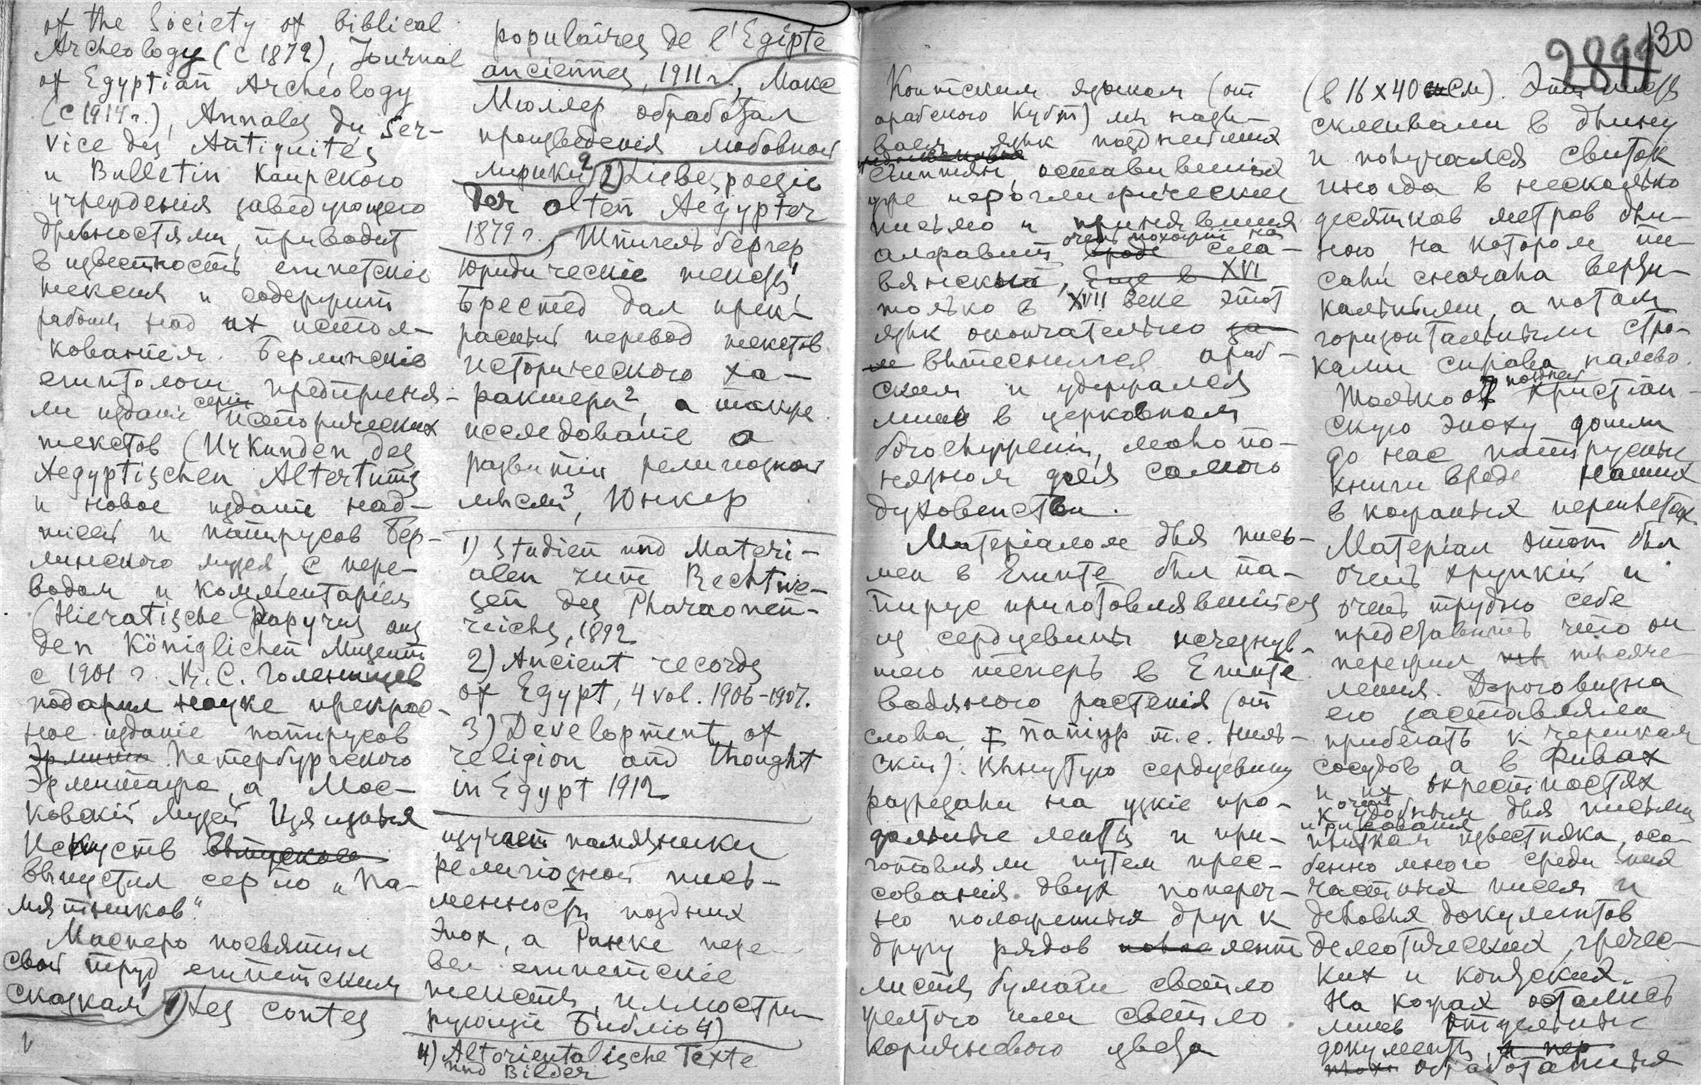 of the Society of biblical
Archeology (с 1872), Journal
of Egyptian Archeology
(с 1914 г.), Annales du Ser-
vice des Antiquités
и Bulletin Каирского
учреждения заведующего
древностями, приводят
в известность египетскіе
тексты и содержит
работы над их истол-
кованием. Берлинскіе
египтологи предприня-
ли изданіе серіи исторических
текстов (Urkunden des
Aegyptischen Altertums
и новое изданіе над-
писей и папирусов Бер-
линского музея с пере-
водом и комментаріем
(Hieratische Papyrus aus
den Königlichen Museen
с 1901 г. В. С. Голенищев
подарил науке прекрас-
ное изданіе папирусов
Эрмита Петербургского
Эрмитажа, а Мос-
ковскій Музей Изящных
Искуств выпусков
выпустил серію „Па-
мятников“.
Масперо посвятил
свой труд египетским
сказкам 1) Les contes
populaires de l'Egipte
anciennes, 1911 г., Макс
Мюллер обработал
произведенія любовной
лирики 2) Liebespoesie
der alten Aegypter
1879 г. Шпигельбергер
юридическіе тексты
Брестед дал прек-
расный перевод текстов
исторического ха-
рактера 2, а также
исследованіе о
развитіи религіозной
мысли 3, Юнкер
1) Studien und Materi-
alen zum Rechtwe-
sen des Pharaonen-
reichs, 1892
2) Ancient records
of Egypt, 4 vol. 1906-1907.
3) Development of
religion and thought
in Egypt 1912
изучает памятники
религіозной пись-
менности поздних
эпох, а Ранке пере-
вел египетскіе
тексты, иллюстри-
рующіе Библію 4)
4) Altorientalische Texte
und Bilder
2899 130
Коптским языком (от
арабского Кубт) мы назы-
ваем язык позднейших
египтян оставивших
уже иероглифическое
письмо и принявших
алфавит вроде очень похожий на сла-
вянскій, Еще в XVI
только в XVII веке этот
язык окончательно за-
вытеснился араб-
ским и удержался
лишь в церковном
богослуженіи, мало по-
нятном для самого
духовенства.
Матеріалом для пись-
мен в Египте был па-
пирус приготовлявшийся
из сердцевины исчезнув-
шего теперь в Египте
водяного растенія (от
слова папіур т.е. Ниль-
скій). Вынутую сердцевину
разрезали на узкіе про-
дольные ленты и при-
готовляли путем прес-
сованія двух попереч-
но положенных друг к
другу рядов лент
листы бумаги светло
желтого или светло
коричневого цвета
(в 16 x 40 см). Эти листы
склеивали в длину
и получался свиток
иногда в несколько
десятков метров дли-
ною на котором пи-
сали сначала верти-
кальными, а потом
горизонтальными стро-
ками справа налево.
Только в позднюю христіан-
скую эпоху дошли
до нас папирусные
книги вроде наших
в кожаных переплетах
Матеріал этот был
очень хрупкій и
очень трудно себе
представить чего он
пережил тысяче-
летия. Дороговизна
его заставляла
прибегать к черепкам
сосудов а в Фивах
и их окрестностях
к очень удобным для письма
и рисования
плиткам известняка, осо-
бенно много среди них
частных писем и
деловых документов
демотических, гречес-
ких и коптских.
На кожах остались
лишь отдельные
документы,